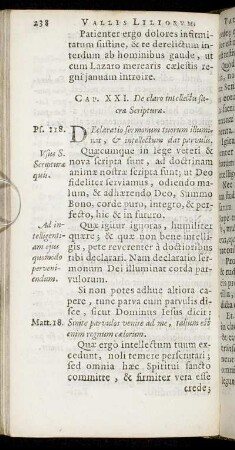 238 VALLIS LILIORUM;
Patienter ergo dolores infirmi-
tatum sustine, & te derelictum in-
terdum ab hominibus gaude, ut
cum Lazaro mercaris cælestis re-
gni januam introire.
CAP. XXI. De claro intellectu sa-
cræ Scripturæ.
Ps. 118.
DEclaratio sermonum tuorum illumi-
nat, & intellectum dat parvulis,
Usus S.
Scripturæ
quis.
Quæcumque in lege veteri &
nova scripta sunt, ad doctrinam
animæ nostræ scripta sunt; ut Deo
fideliter serviamus, odiendo ma-
lum, & adhærendo Deo, Summo
Bono, corde puro, integro, & per-
fecto, hic & in futuro.
Ad in-
telligenti-
am ejus
quomodo
perveni-
endum.
Quæ igitur ignoras, humiliter
quære; & quæ non bene intelli-
gis, pete reverenter à doctioribus
tibi declarari. Nam declaratio ser-
monum Dei illuminat corda par-
vulorum.
Si non potes adhuc altiora ca-
pere, tunc parva cum parvulis di-
sce, sicut Dominus Iesus dicit:
Matt. 18.
Sinite parvulos venire ad me, talium est
enim regnum cælorum.
Quæ ergò intellectum tuum ex-
cedunt, noli temere perscrutari;
sed omnia hæc Spiritui sancto
committe, & firmiter vera esse
crede;